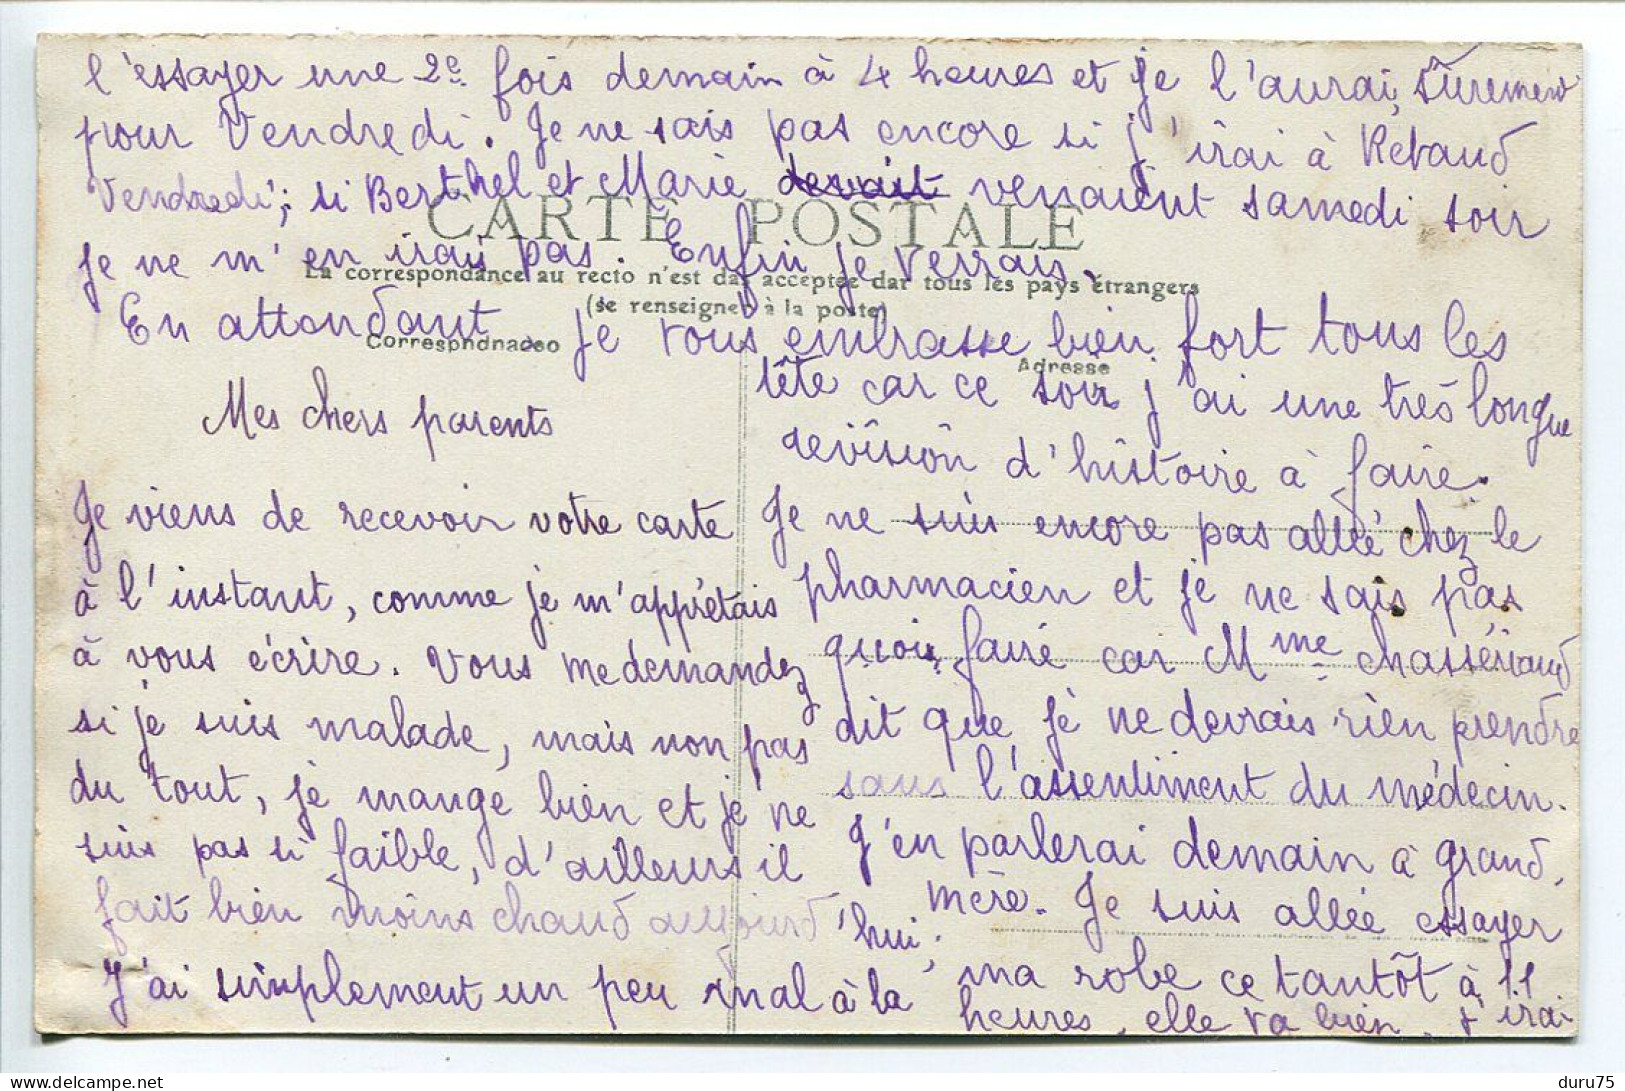 Mes chers parents
Je viens de recevoir votre carte
à l'instant, comme je m'apprêtais
à vous écrire. Vous me demandez
si je suis malade, mais non pas
du tout, je mange bien et je ne
suis pas si faible, d'ailleurs il
fait bien moins chaud aujourd'hui;
J'ai simplement un peu mal à la
tête car ce soir j'ai une très longue
révision d'histoire à faire.
Je ne suis encore pas allée chez le
pharmacien et je ne sais pas
quoi faire car Mme Chassériaud
dit que je ne devrais rien prendre
sans l'assentiment du médecin.
J'en parlerai demain à grand,
mère. Je suis allée essayer
ma robe ce tantôt à 11
heures, elle va bien. J'irai
l'essayer une 2e fois demain à 4 heures et je l'aurai sûrement
pour Vendredi. Je ne sais pas encore si j'irai à Rétaud
Vendredi; si Berthel et Marie devait venaient samedi soir
je ne m'en irai pas. Enfin je verrais.
En attendant je vous embrasse bien fort tous les
CARTE POSTALE
La correspondance au recto n'est pas acceptée par tous les pays étrangers
(se renseigner à la poste)
Correspondnaceo
Adresse
delcampe.net
duru75